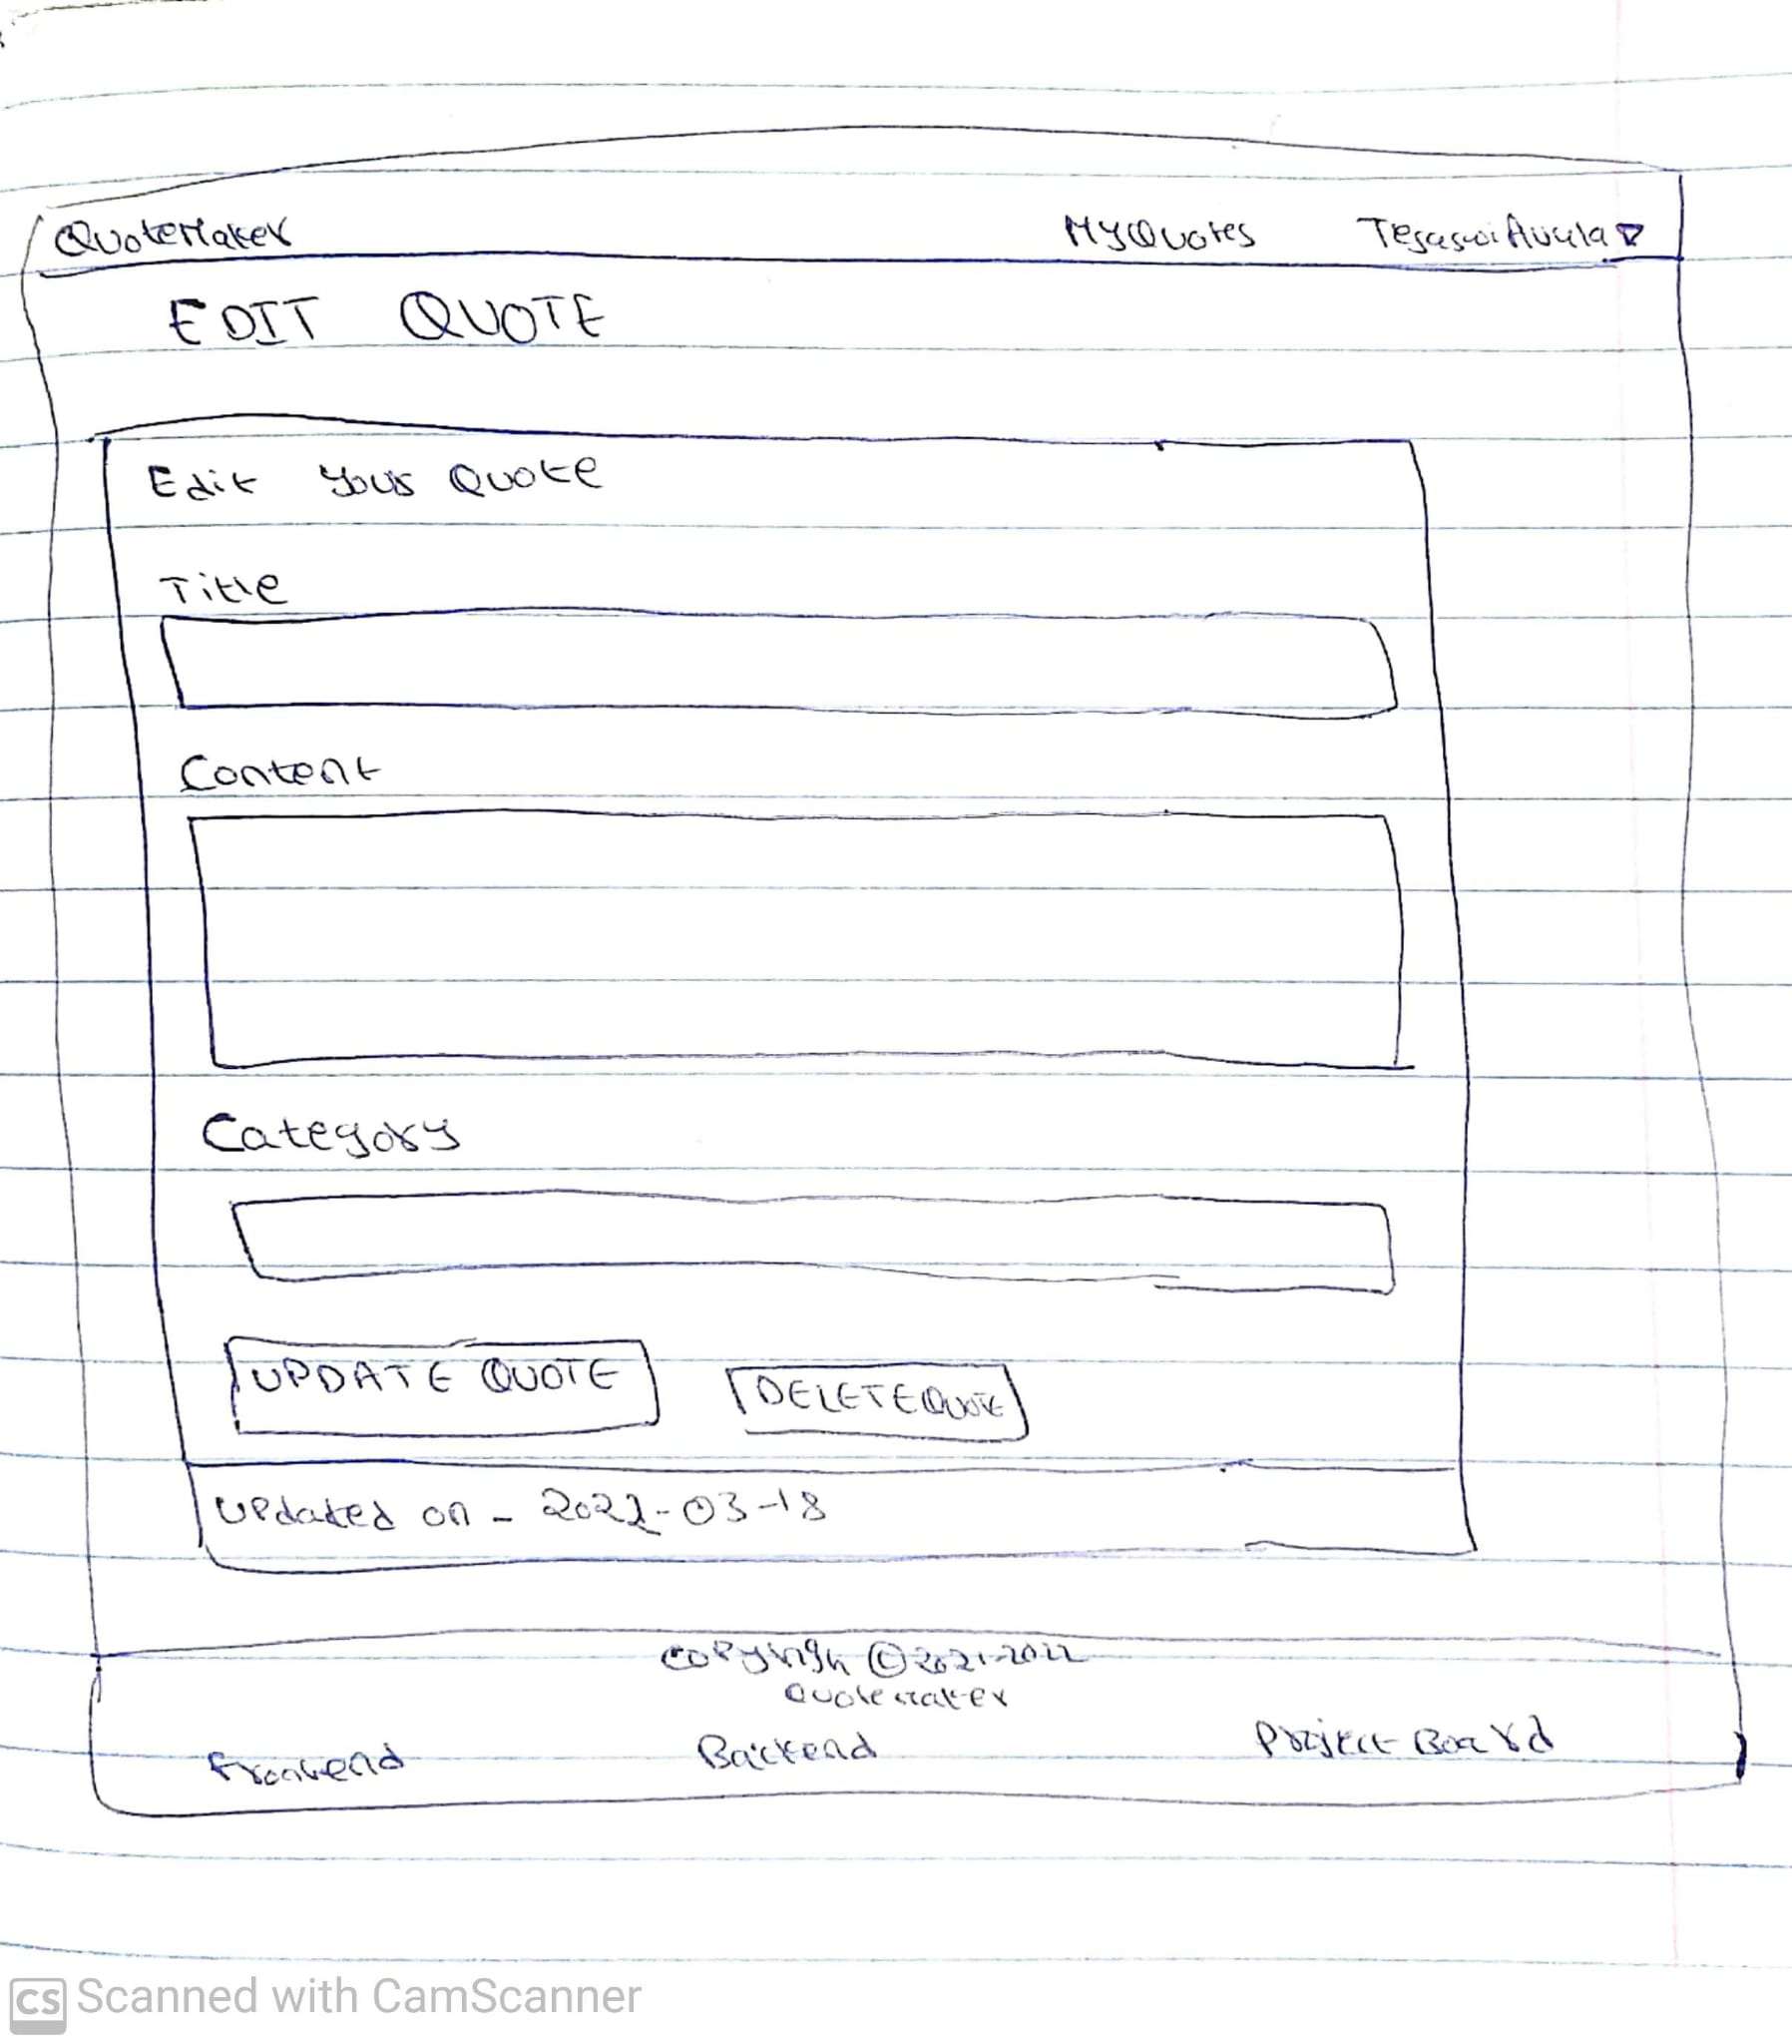 QuoteMaker MyQuotes Tejaswi Avula
EDIT QUOTE
Edit Your Quote
Title
Content
Category
UPDATE QUOTE DELETE QUOTE
Updated on - 2022-03-18
Copyrigh © 2021-2022
QuoteMaker
Frontend Backend Project Board
CS Scanned with CamScanner